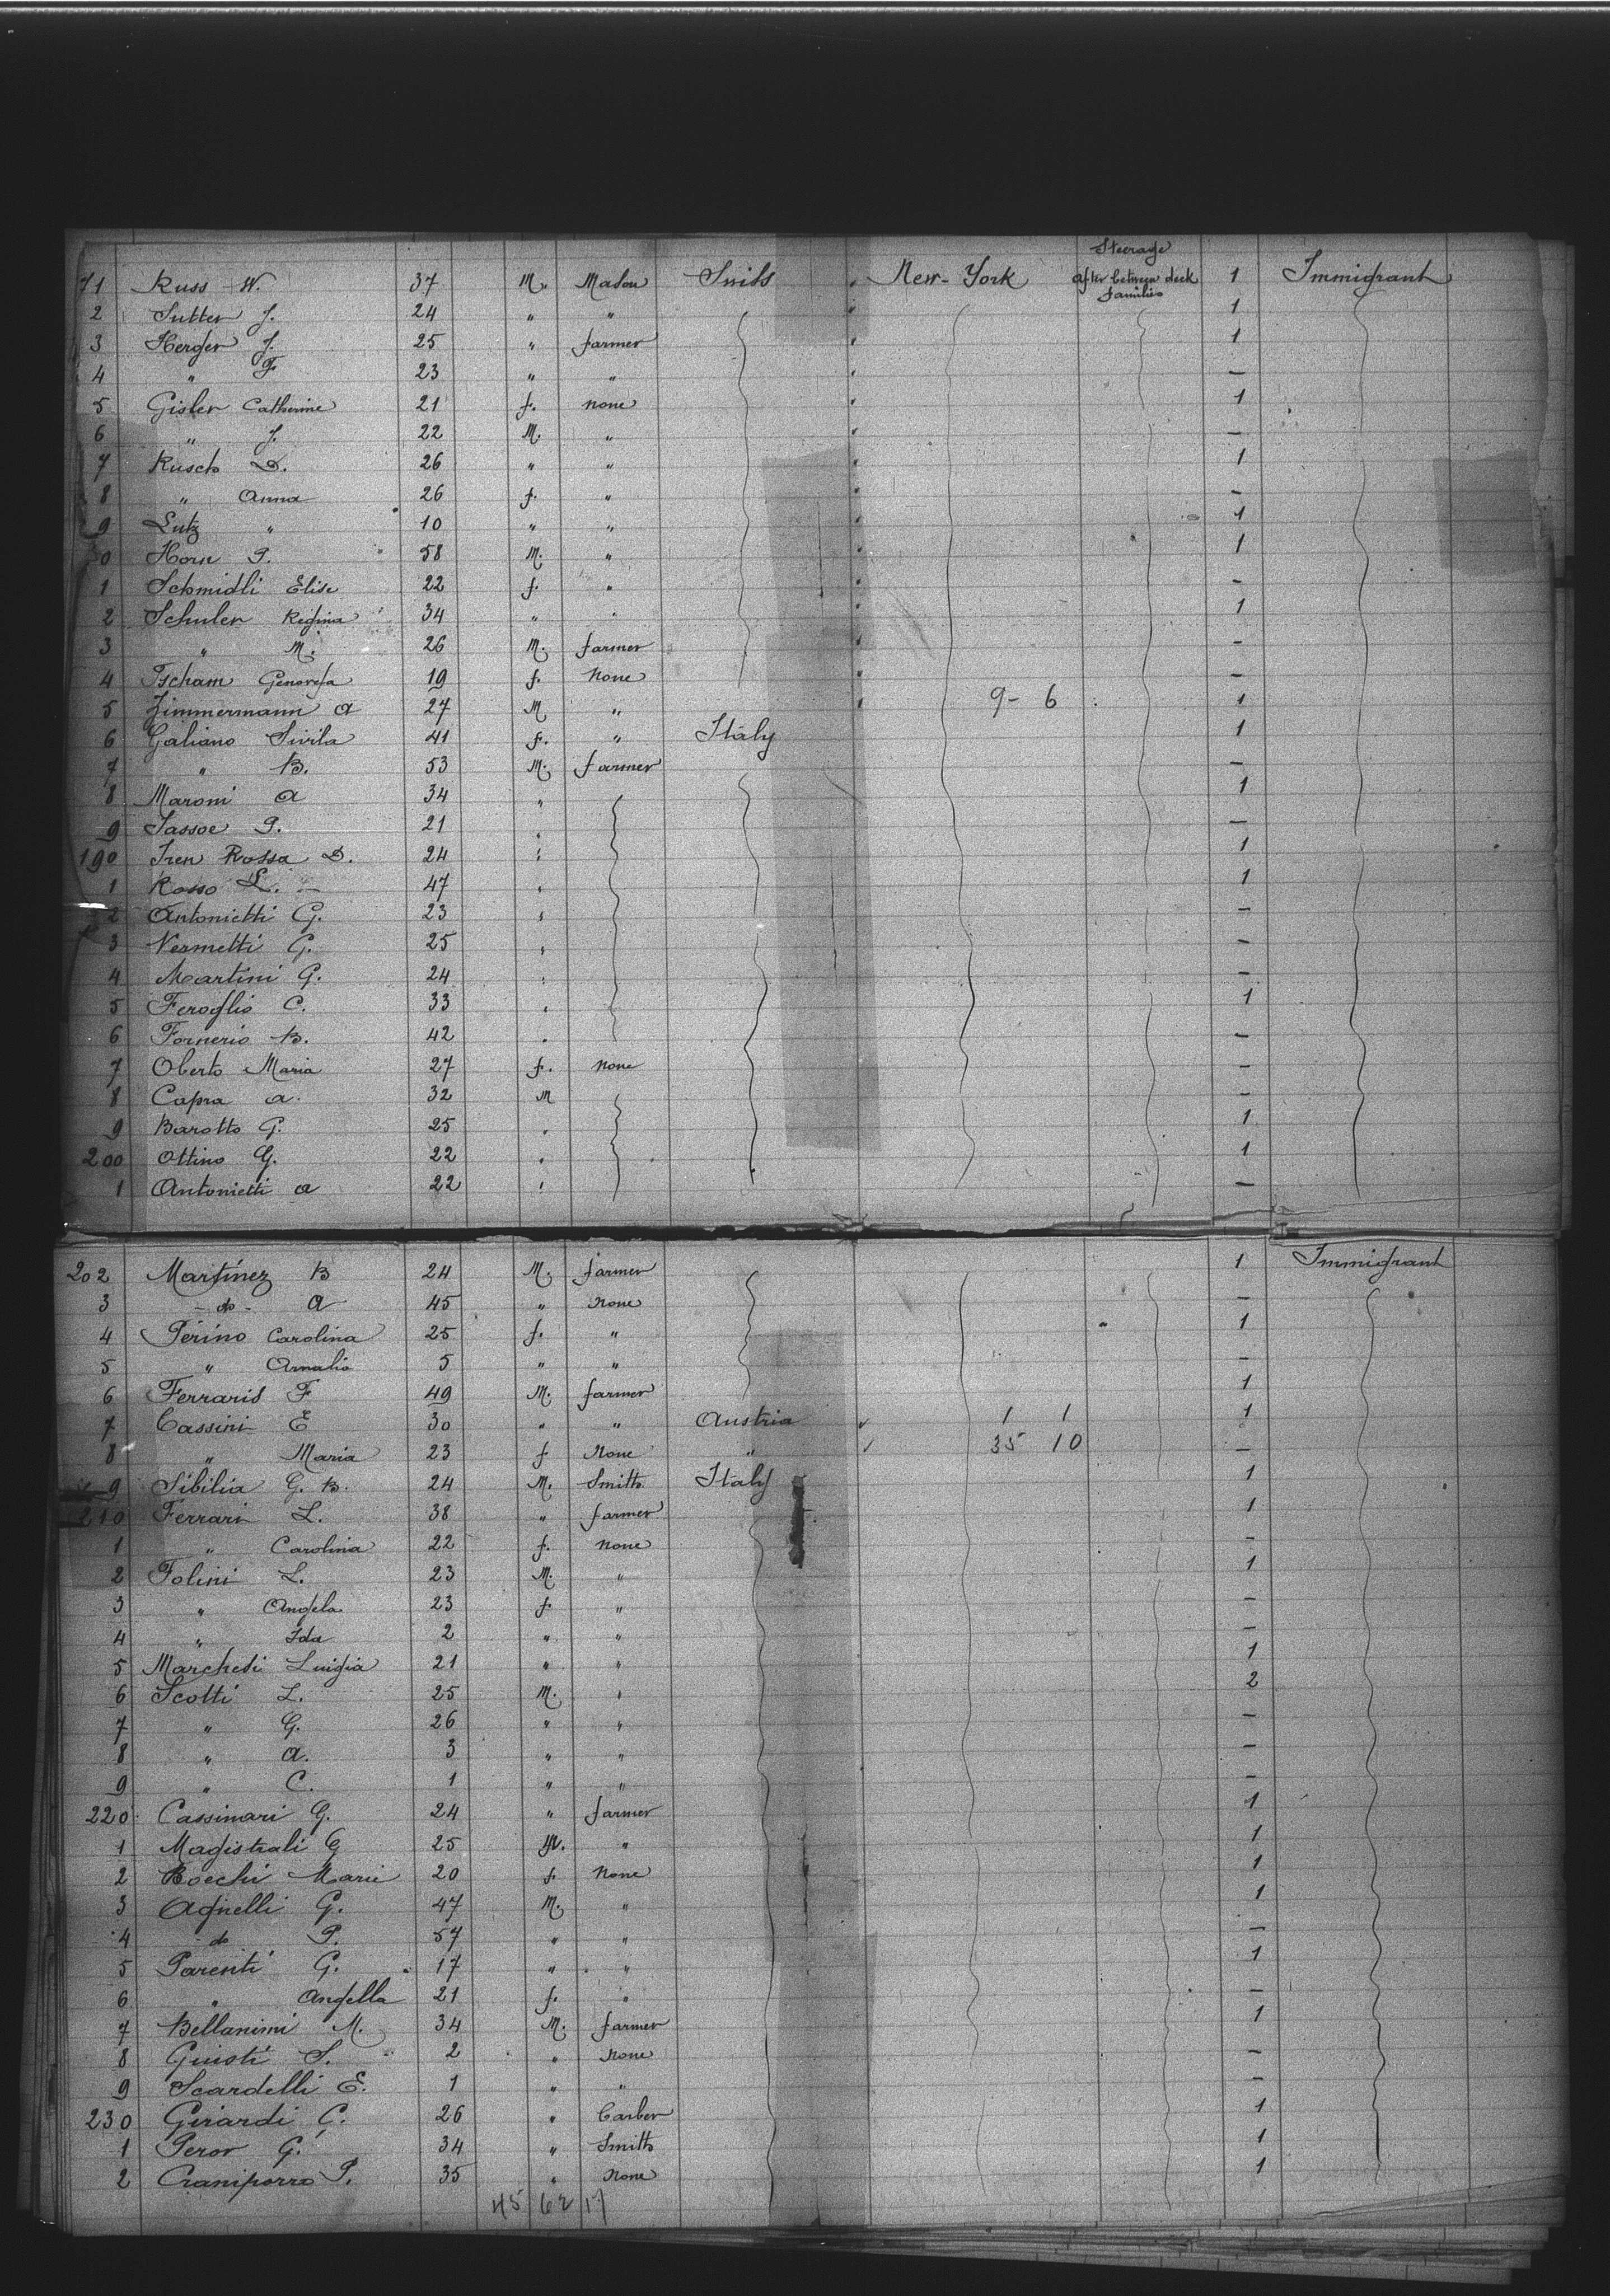 Steerage
71 Russ W. 37 M. Mason Suiss " New-York after between deck families 1 Immigrant
2 Sutter J. 24 " " " 1
3 Herger J. 25 " farmer " 1
4 " F 23 " " " —
5 Gisler Catherine 21 f. none " 1
6 " J. 22 M. " " —
7 Rusch D. 26 " " " 1
8 " Anna 26 f. " " —
9 Lutz " 10 " " " 1
0 Horn P. 58 M. " " 1
1 Schmidli Elise 22 f. " " —
2 Schuler Regina 34 " " " 1
3 " M. 26 M. farmer " —
4 Tscham Genovefa 19 f. None " —
5 Zimmermann A 27 M " " 9- 6 1
6 Galiano Sivila 41 f. " Italy 1
7 " B. 53 M. farmer —
8 Maroni A 34 " 1
9 Sassoe P. 21 " —
190 Tren Rossa D. 24 " 1
1 Rosso L. 47 " 1
2 Antonietti G. 23 " —
3 Vermetti G. 25 " —
4 Martini G. 24 " —
5 Feroglio C. 33 " 1
6 Fornerio B. 42 " —
7 Oberto Maria 27 f. none —
8 Capra a. 32 M —
9 Barotto G. 25 " 1
200 Ottino G. 22 " 1
1 Antonietti a 22 " —
202 Martinez B 24 M. farmer 1 Immigrant
3 - do - A 45 " None —
4 Perino Carolina 25 f. " 1
5 " Amalia 5 " " —
6 Ferraris F 49 M. farmer 1
7 Cassini E 30 " " Austria 1 1 1
8 " Maria 23 f None " 35 10 —
9 Sibilia G. B. 24 M. Smith Italy 1
210 Ferrari L. 38 " farmer 1
1 " Carolina 22 f. None —
2 Folini L. 23 M. " 1
3 " Angela 23 f. " —
4 " Ida 2 " " —
5 Marchesi Luigia 21 " " 1
6 Scotti L. 25 M. " 2
7 " G. 26 " " —
8 " A. 3 " " —
9 " C. 1 " " —
220 Cassinari G. 24 " farmer 1
1 Magistrali G 25 M. " 1
2 Boechi Marie 20 f. None 1
3 Agnelli G. 47 M. " 1
4 do P. 57 " " —
5 Parenti G. 17 " " 1
6 " Angella 21 f. " —
7 Bellanimi M. 34 M. farmer 1
8 Guisti S. 2 " None —
9 Scardelli E. 1 " " —
230 Girardi C. 26 " Carber 1
1 Peror G. 34 " Smith 1
2 Craniporro P. 35 " None 1
45 62 17